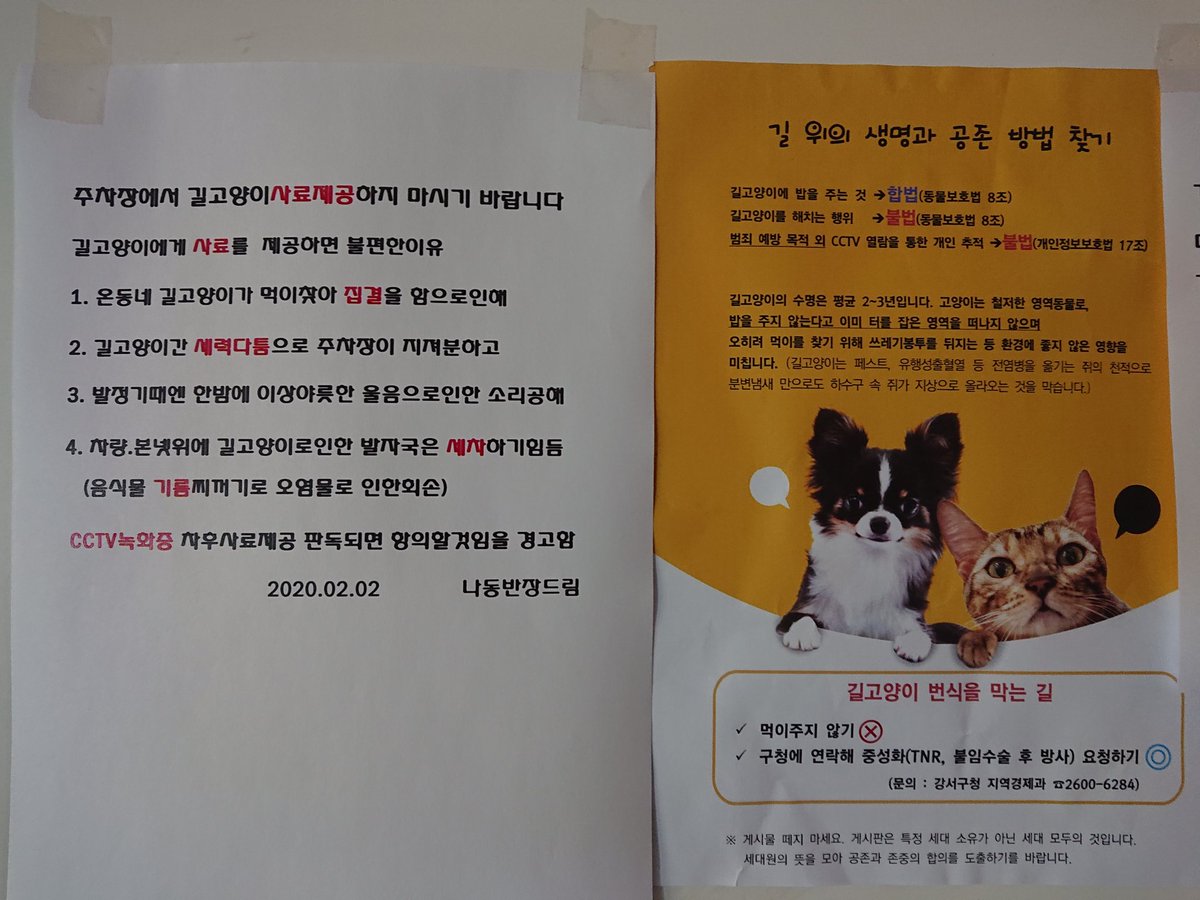 주차장에서 길고양이사료제공하지 마시기 바랍니다
길고양이에게 사료를 제공하면 불편한이유
1. 온동네 길고양이가 먹이찾아 집결을 함으로인해
2. 길고양이간 세력다툼으로 주차장이 지져분하고
3. 발정기때엔 한밤에 이상야릇한 울음으로인한 소리공해
4. 차량.본넷위에 길고양이로인한 발자국은 세차하기힘듬
(음식물 기름찌꺼기로 오염물로 인한회손)
CCTV녹화중 차후사료제공 판독되면 항의할것임을 경고함
2020.02.02 나동반장드림
길 위의 생명과 공존 방법 찾기
길고양이에 밥을 주는 것 →합법(동물보호법 8조)
길고양이를 해치는 행위 →불법(동물보호법 8조)
범죄 예방 목적 외 CCTV 열람을 통한 개인 추적 →불법(개인정보보호법 17조)
길고양이의 수명은 평균 2~3년입니다. 고양이는 철저한 영역동물로,
밥을 주지 않는다고 이미 터를 잡은 영역을 떠나지 않으며
오히려 먹이를 찾기 위해 쓰레기봉투를 뒤지는 등 환경에 좋지 않은 영향을
미칩니다. (길고양이는 페스트, 유행성출혈열 등 전염병을 옮기는 쥐의 천적으로
분변냄새 만으로도 하수구 속 쥐가 지상으로 올라오는 것을 막습니다.)
길고양이 번식을 막는 길
✓ 먹이주지 않기 ⓧ
✓ 구청에 연락해 중성화(TNR, 불임수술 후 방사) 요청하기 ◎
(문의 : 강서구청 지역경제과 ☎2600-6284)
※ 게시물 떼지 마세요. 게시판은 특정 세대 소유가 아닌 세대 모두의 것입니다.
세대원의 뜻을 모아 공존과 존중의 합의를 도출하기를 바랍니다.